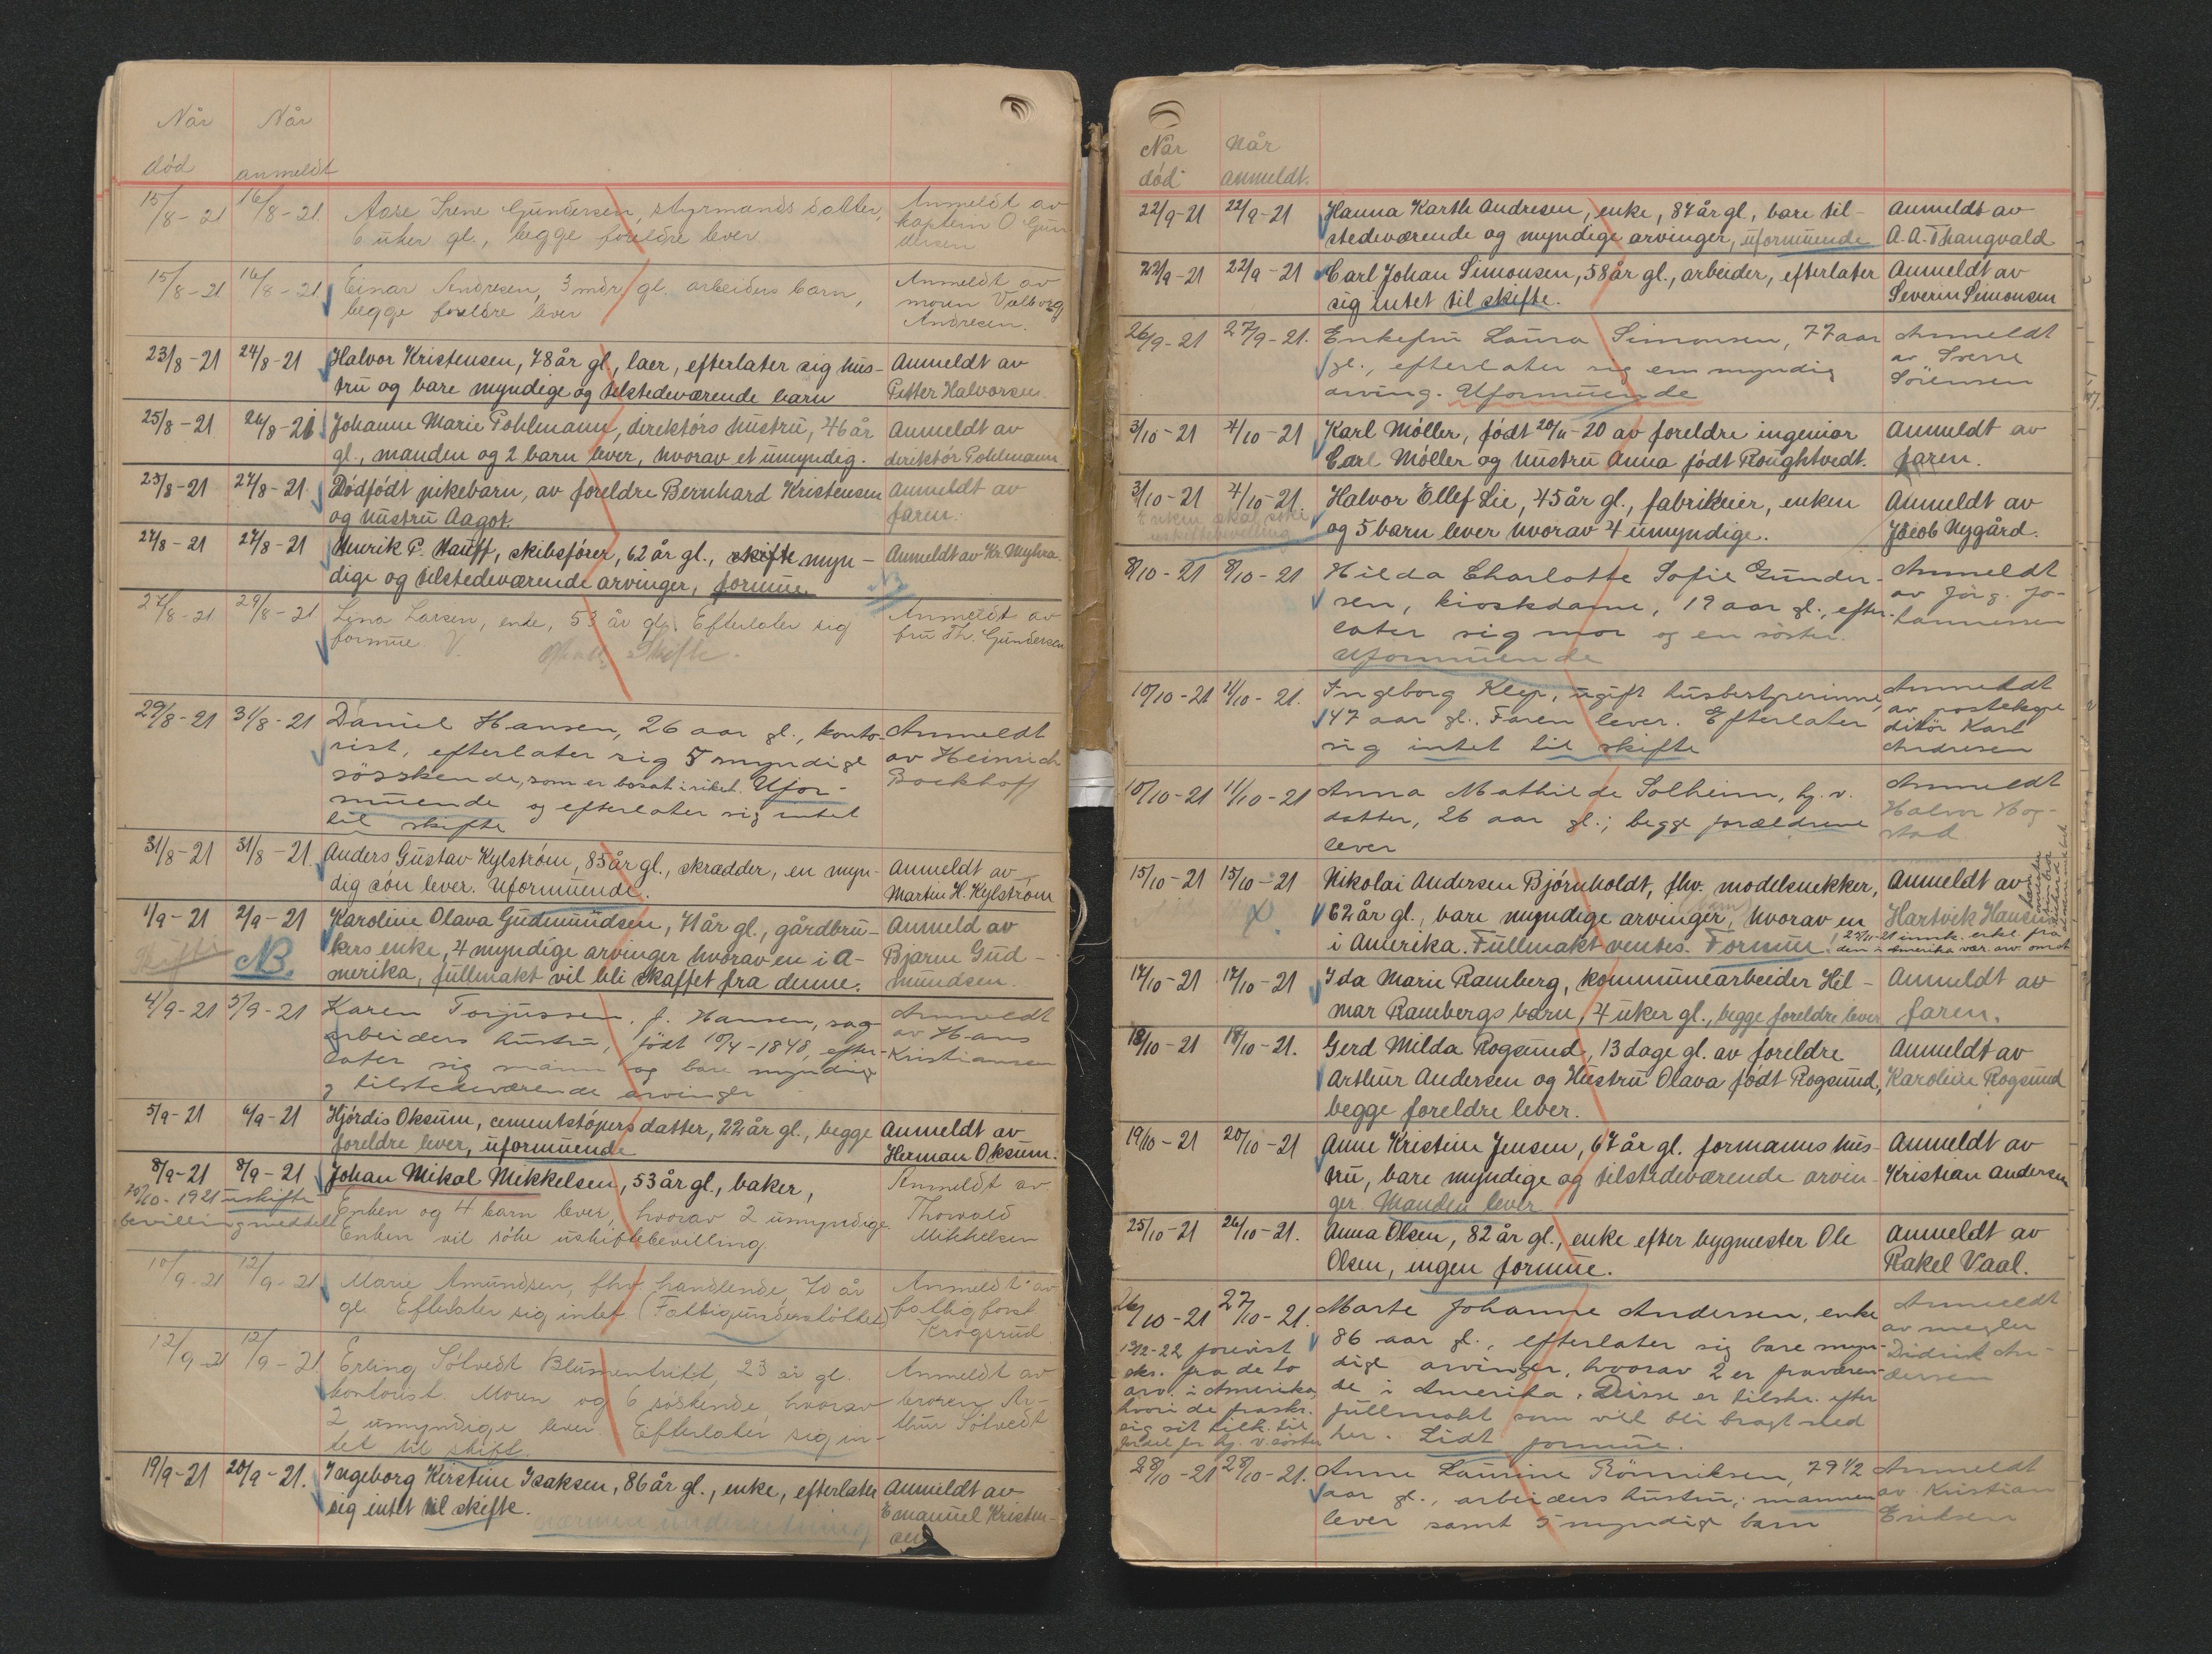 Når Når
død anmeldt
15/8-21 16/8-21. Aase Irene Gundersen, styrmands datter, Anmeldt av
6 uker gl., begge foreldre lever. kaptein O Gun
dersen
15/8-21 16/8-21 Einar Andresen, 3 mdr gl. arbeiders barn, Anmeldt av
begge foreldre lever moren Valborg
Andresen.
23/8-21 24/8-21 Halvor Kristensen, 78 år gl., laer, efterlater sig hus- Anmeldt av
tru og bare myndige og tilstedeværende barn Petter Halvorsen.
25/8-21 26/8-21 Johanne Marie Pohlmann, direktørs hustru, 46 år Anmeldt av
gl., manden og 2 barn lever, hvorav et umyndig. direktør Pohlmann.
25/8-21 27/8-21. Dødfødt pikebarn, av foreldre Bernhard Kristensen Anmeldt av
og hustru Aagot. faren.
27/8-21 27/8-21 Henrik P. Hauff, skibsfører, 62 år gl., skifte myn- Anmeldt av Kr. Myhra
dige og tilstedeværende arvinger, formue.
27/8-21 29/8-21 Lena Larsen, enke, 53 år gl. Efterlater sig Anmeldt av
formue. Skifte. fru Th. Gundersen
29/8-21 31/8-21 Daniel Hansen, 26 aar gl., konto- Anmeldt
rist, efterlater sig 5 myndige av Heinrich
søsskende, som er bosat i riket. Ufor- Bockhoff
muende og efterlater sig intet
til skifte
31/8-21 31/8-21. Anders Gustav Kylstrøm, 85 år gl., skrædder, en myn- Anmeldt av
dig søn lever. Uformuende. Martin H. Kylstrøm
1/9-21 2/9-21 Karoline Olava Gudmundsen, 71 år gl., gårdbru- Anmeld av
Skifte NB. kers enke, 4 myndige arvinger hvorav en i A- Bjarne Gud-
merika, fullmakt vil bli skaffet fra denne. mundsen.
4/9-21 5/9-21 Karen Torjussen, f. Hansen, sag- Anmeldt
arbeiders hustru, født 10/4-1848, efter- av Hans
later sig mann og bare myndige Kristiansen
og tilstedeværende arvinger
5/9-21 6/9-21 Hjørdis Oksum, cementstøpers datter, 22 år gl., begge Anmeldt av
foreldre lever, uformuende Herman Oksum.
8/9-21 8/9-21 Johan Mikal Mikkelsen, 53 år gl., baker, Anmeldt av
20/10-1921 uskifte Enken og 4 barn lever, hvorav 2 umyndige. Thorvald
bevilling meddelt Enken vil söke uskiftebevilling. Mikkelsen
10/9-21 12/9-21 Marie Amundsen, fhv. handlende, 70 år Anmeldt av
gl. Efterlater sig intet (Fattigunderstøttet) fattigforst.
Krogsrud.
12/9-21 12/9-21 Erling Sølvedt Blumentritt, 23 år gl. Anmeldt av
kontorist. Moren og 6 söskende hvorav broren Ar-
2 umyndige lever. Efterlater sig in- thur Sølvedt
tet til skifte.
19/9-21 20/9-21. Ingeborg Kirstine Isaksen, 86 år gl., enke, efterlater Anmeldt av
sig intet til skifte. Emanuel Kristen-
nærmere underretning sen
Når Når
død anmeldt.
22/9-21 22/9-21 Hanna Karth Andresen, enke, 87 år gl., bare til- Anmeldt av
stedeværende og myndige arvinger, uformuende A. A. Thangvald
22/9-21 22/9-21 Carl Johan Simonsen, 58 år gl., arbeider, efterlater Anmeldt av
sig intet til skifte. Severin Simonsen
26/9-21 27/9-21. Enkefru Laura Simonsen, 77 aar Anmeldt
gl., efterlater sig em myndig av Sverre
arving. Uformuende Sörensen
3/10-21 4/10-21 Karl Møller, født 20/11-20 av foreldre ingeniør Anmeldt av
Carl Møller og hustru Anna født Roughtvedt. faren.
3/10-21 4/10-21. Halvor Ellef Lie, 45 år gl., fabrikeier, enken Anmeldt av
Enken skal søke uskiftebevilling og 5 barn lever hvorav 4 umyndige. Jacob Nygård.
8/10-21 8/10-21 Hilda Charlotte Sofie Gunder- Anmeldt
sen, kioskdame, 19 aar gl., efter- av Jörg. Jo-
later sig mor og en søster. hannessen
Uformuende
10/10-21 11/10-21. Ingeborg Klep, ugift husbestyrerinne, Anmeldt
47 aar gl. Faren lever. Efterlater av postekspe
sig intet til skifte ditör Karl
Andresen
10/10-21 11/10-21 Anna Mathilde Solheim, hj. v. Anmeldt
datter, 26 aar gl.; begge forældrene Halvor Bog-
lever stad
15/10-21 15/10-21 Nikolai Andersen Bjørnholdt, fhv. modelsnekker, Anmeldt av
62 år gl., bare myndige arvinger, (barn) hvorav en Hartvik Hansen
i Amerika. Fullmakt ventes. Formue!
17/10-21 17/10-21 Ida Marie Ramberg, kommunearbeider Hil- Anmeldt av
mar Rambergs barn, 4 uker gl., begge foreldre lever faren.
18/10-21 18/10-21. Gerd Milda Rogsund, 13 dage gl. av foreldre Anmeldt av
Arthur Andersen og Hustru Olava født Rogsund, Karoline Rogsund
begge foreldre lever.
19/10-21 20/10-21 Anne Kristine Jensen, 67 år gl. formanns hus- Anmeldt av
tru, bare myndige og tilstedeværende arvin- Kristian Andersen
ger. Manden lever
25/10-21 26/10-21. Anna Olsen, 82 år gl., enke efter bygmester Ole Anmeldt av
Olsen, ingen formue. Rakel Vaal.
26/10-21 27/10-21. Marte Johanne Andersen, enke Anmeldt
86 aar gl., efterlater sig bare myn- av megler
forevist dige arvinger, hvorav 2 er fraværen- Didrik An-
skr. fra de to de i Amerika. Disse er tilskr. efter dersen
arv. i Amerika, fullmakt som vil bli bragt ned
hvori de fraskr. her. Lidt formue.
28/10-21 28/10-21. Anne Laurine Rönniksen, 79 1/2 Anmeldt
aar gl., arbeiders hustru; mannen av Kristian
lever samt 5 myndige barn Eriksen